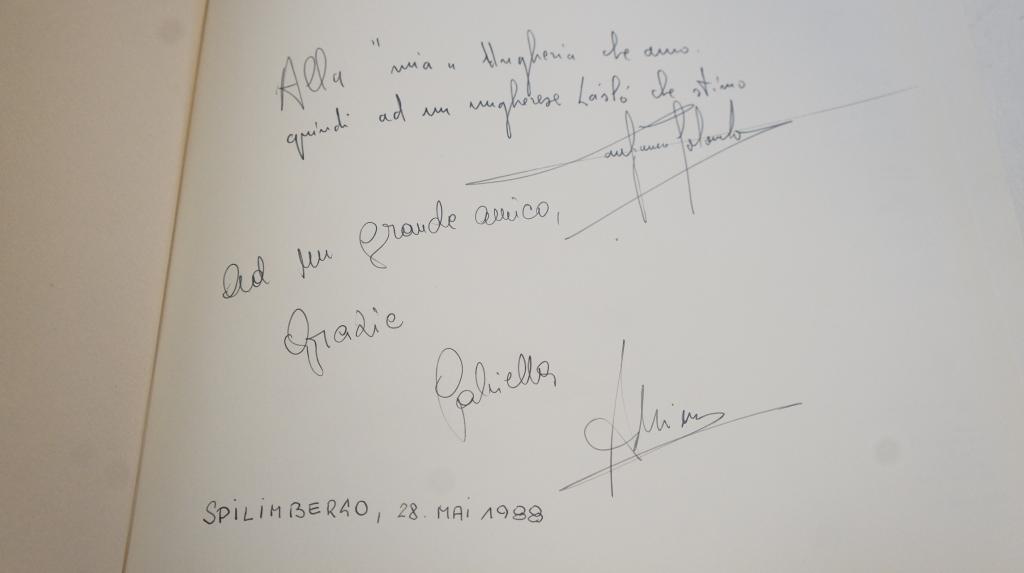 Alla "mia" Ungheria che amo.
quindi ad un ungherese László che stimo
ad un grande amico,
Grazie
Gabriella
SPILIMBERGO, 28. MAI 1988